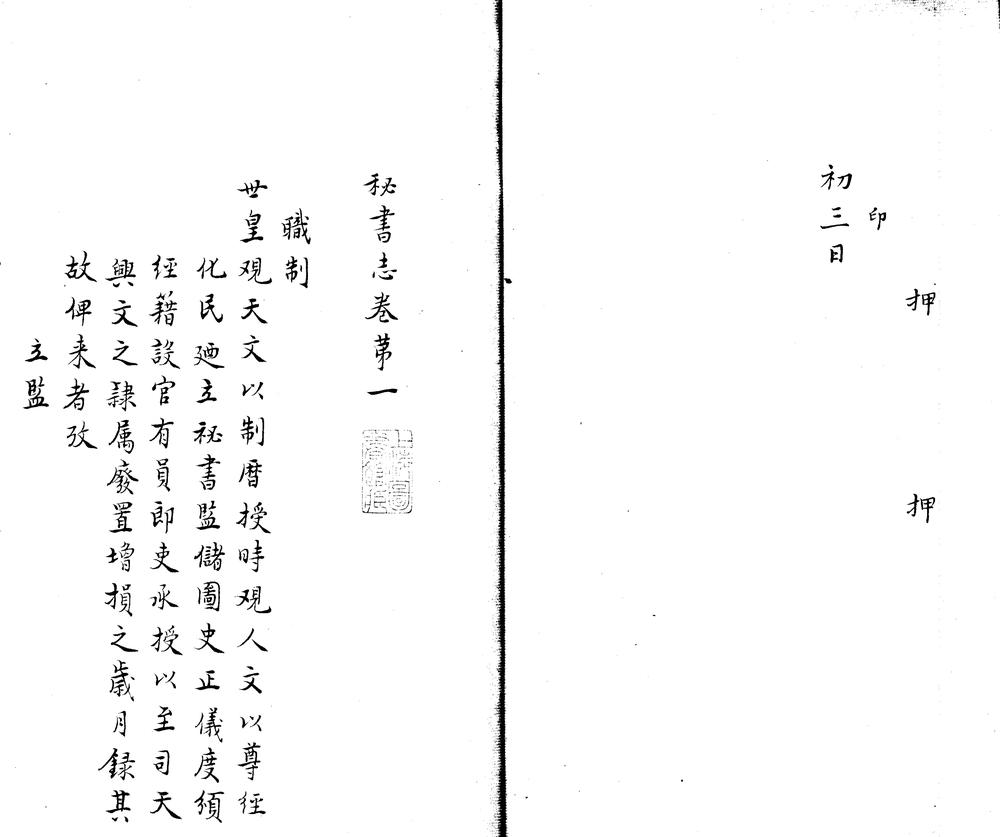 押 押
印
初三日
秘書志卷苐一
職制
世皇覌天文以制暦授時覌人文以尊經
化民廼立祕書監儲圖史正儀度頒
經籍設官有員即吏承授以至司天
興文之隷属廢置增損之歳月録其
故俾来者攷
立監